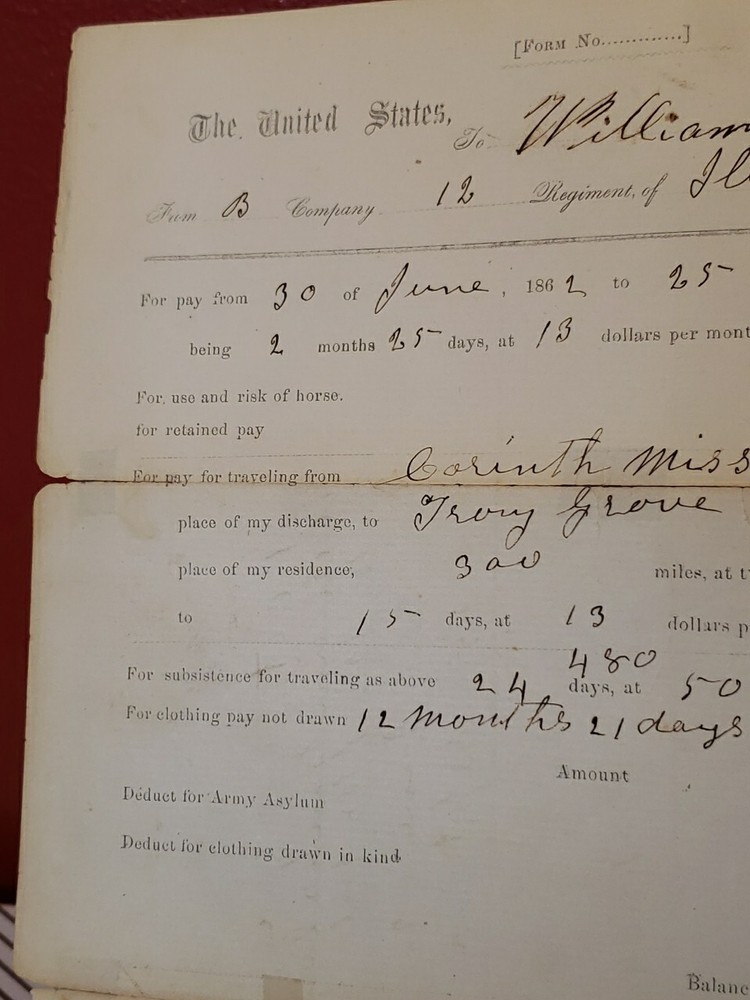 [FORM No.............]
The United States, To William
From B Company 12 Regiment, of Il
For pay from 30 of June, 1862 to 25
being 2 months 25 days, at 13 dollars per mont
For use and risk of horse.
for retained pay
For pay for traveling from Corinth Miss
place of my discharge, to Irony Grove
place of my residence, 300 miles, at t
to 15 days, at 13 dollars p
480
For subsistence for traveling as above 24 days, at 50
For clothing pay not drawn 12 months 21 days
Amount
Deduct for Army Asylum
Deduct for clothing drawn in kind
Balanc